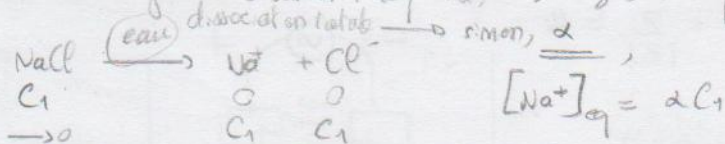 dissociation totale → sinon, α,
NaCl (eau) → Na⁺ + Cl⁻
C₁ 0 0 [Na⁺]eq = αC₁
→0 C₁ C₁